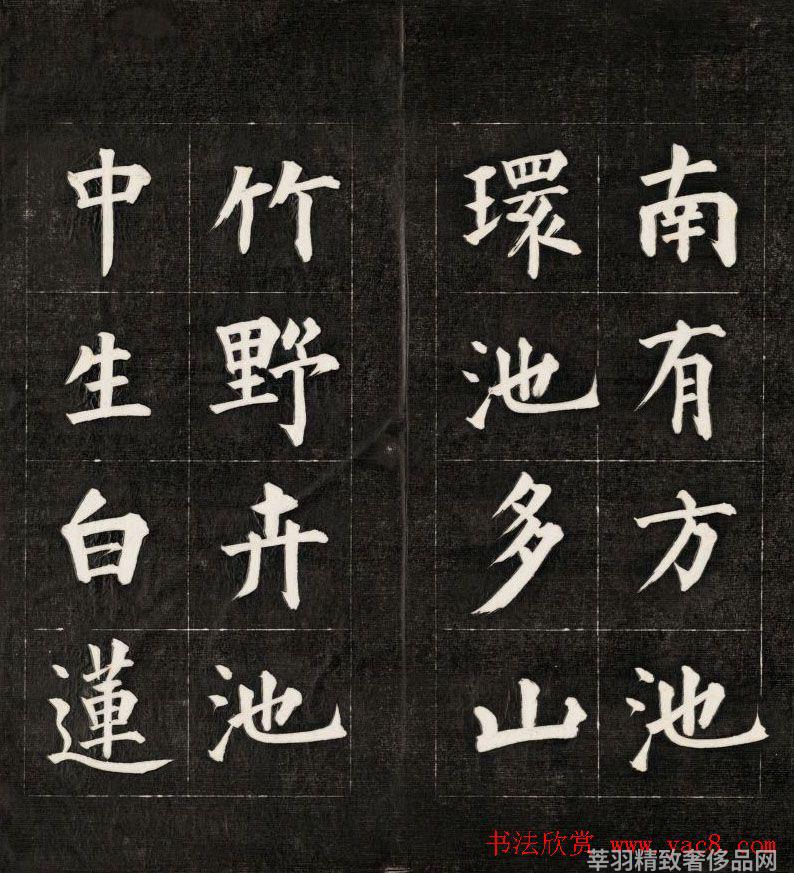 南有方池
環池多山
竹野卉池
中生白蓮
书法欣赏 www.yac8.com
莘羽精致奢侈品网